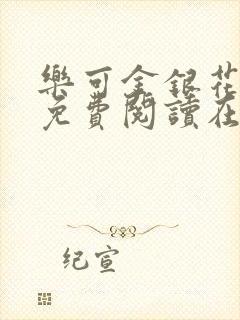 樂可金銀花
免費閱讀在
纪宣